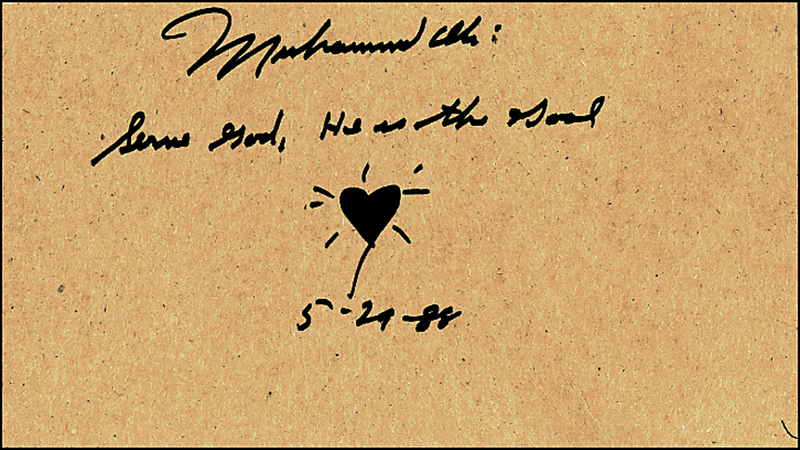 Muhammad Ali:
Serve God, He is the Goal
5-29-88